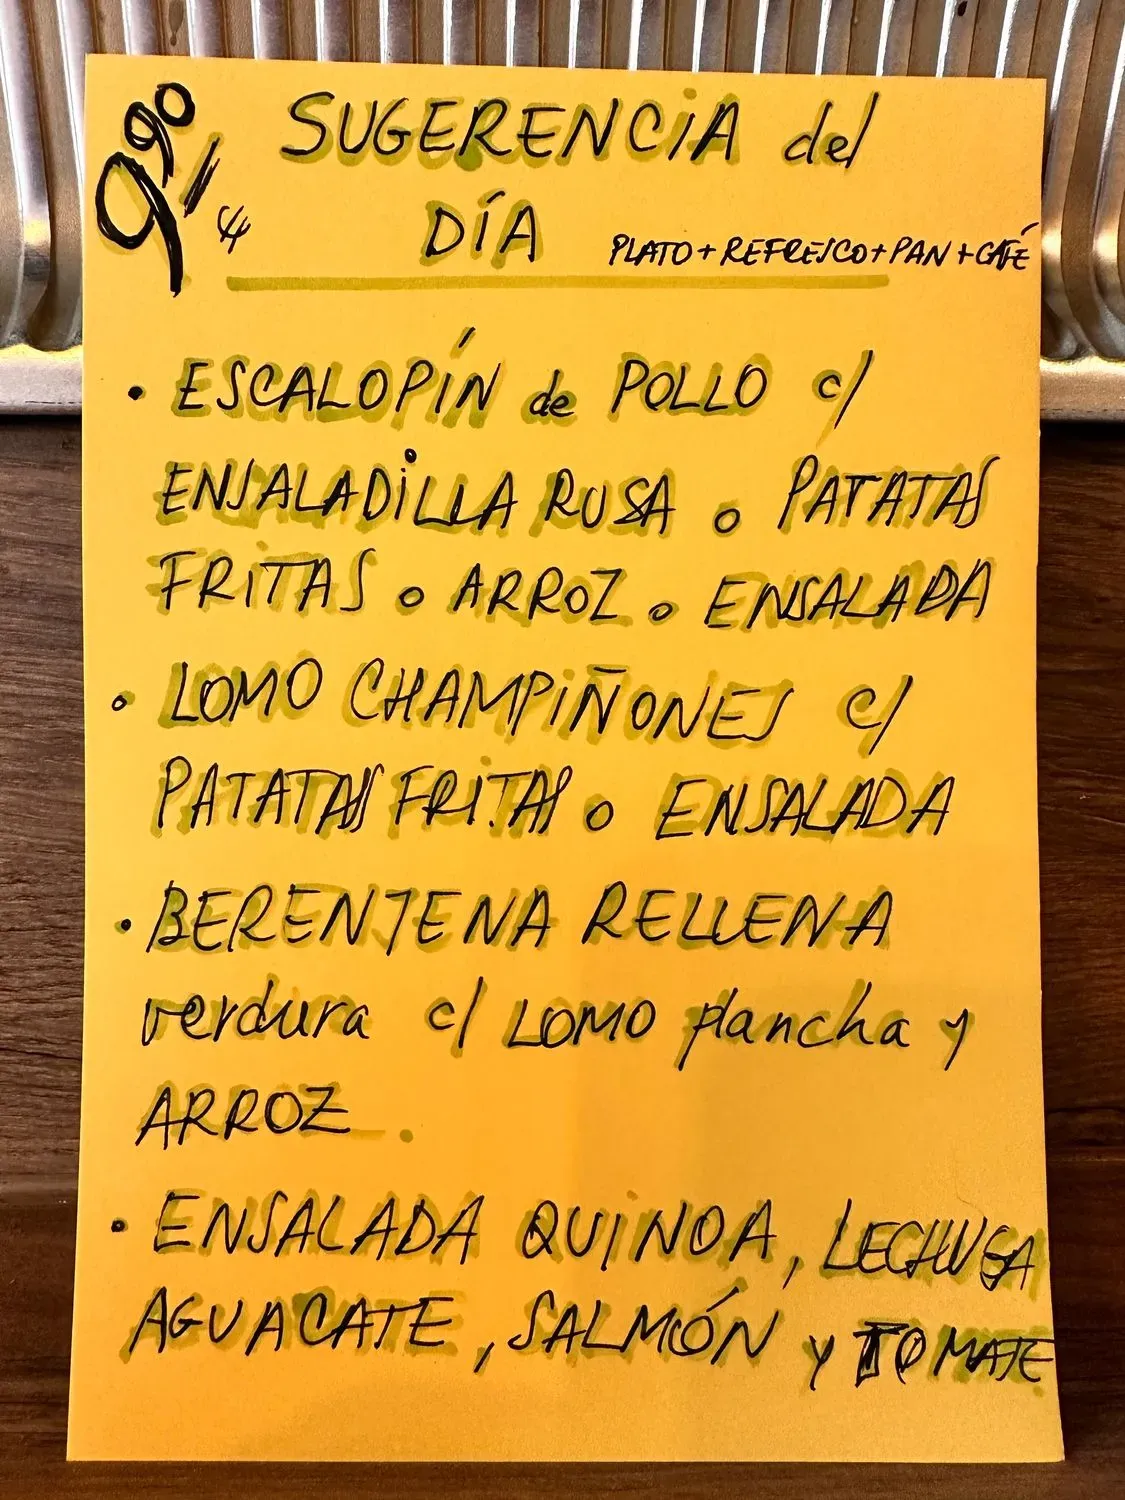 9,90 €
SUGERENCIA del
DÍA
PLATO + REFRESCO + PAN + CAFÉ
• ESCALOPÍN de POLLO c/
ENSALADILLA RUSA o PATATAS
FRITAS o ARROZ o ENSALADA
• LOMO CHAMPIÑONES c/
PATATAS FRITAS o ENSALADA
• BERENJENA RELLENA
verdura c/ LOMO plancha y
ARROZ.
• ENSALADA QUINOA, LECHUGA
AGUACATE, SALMÓN y TOMATE